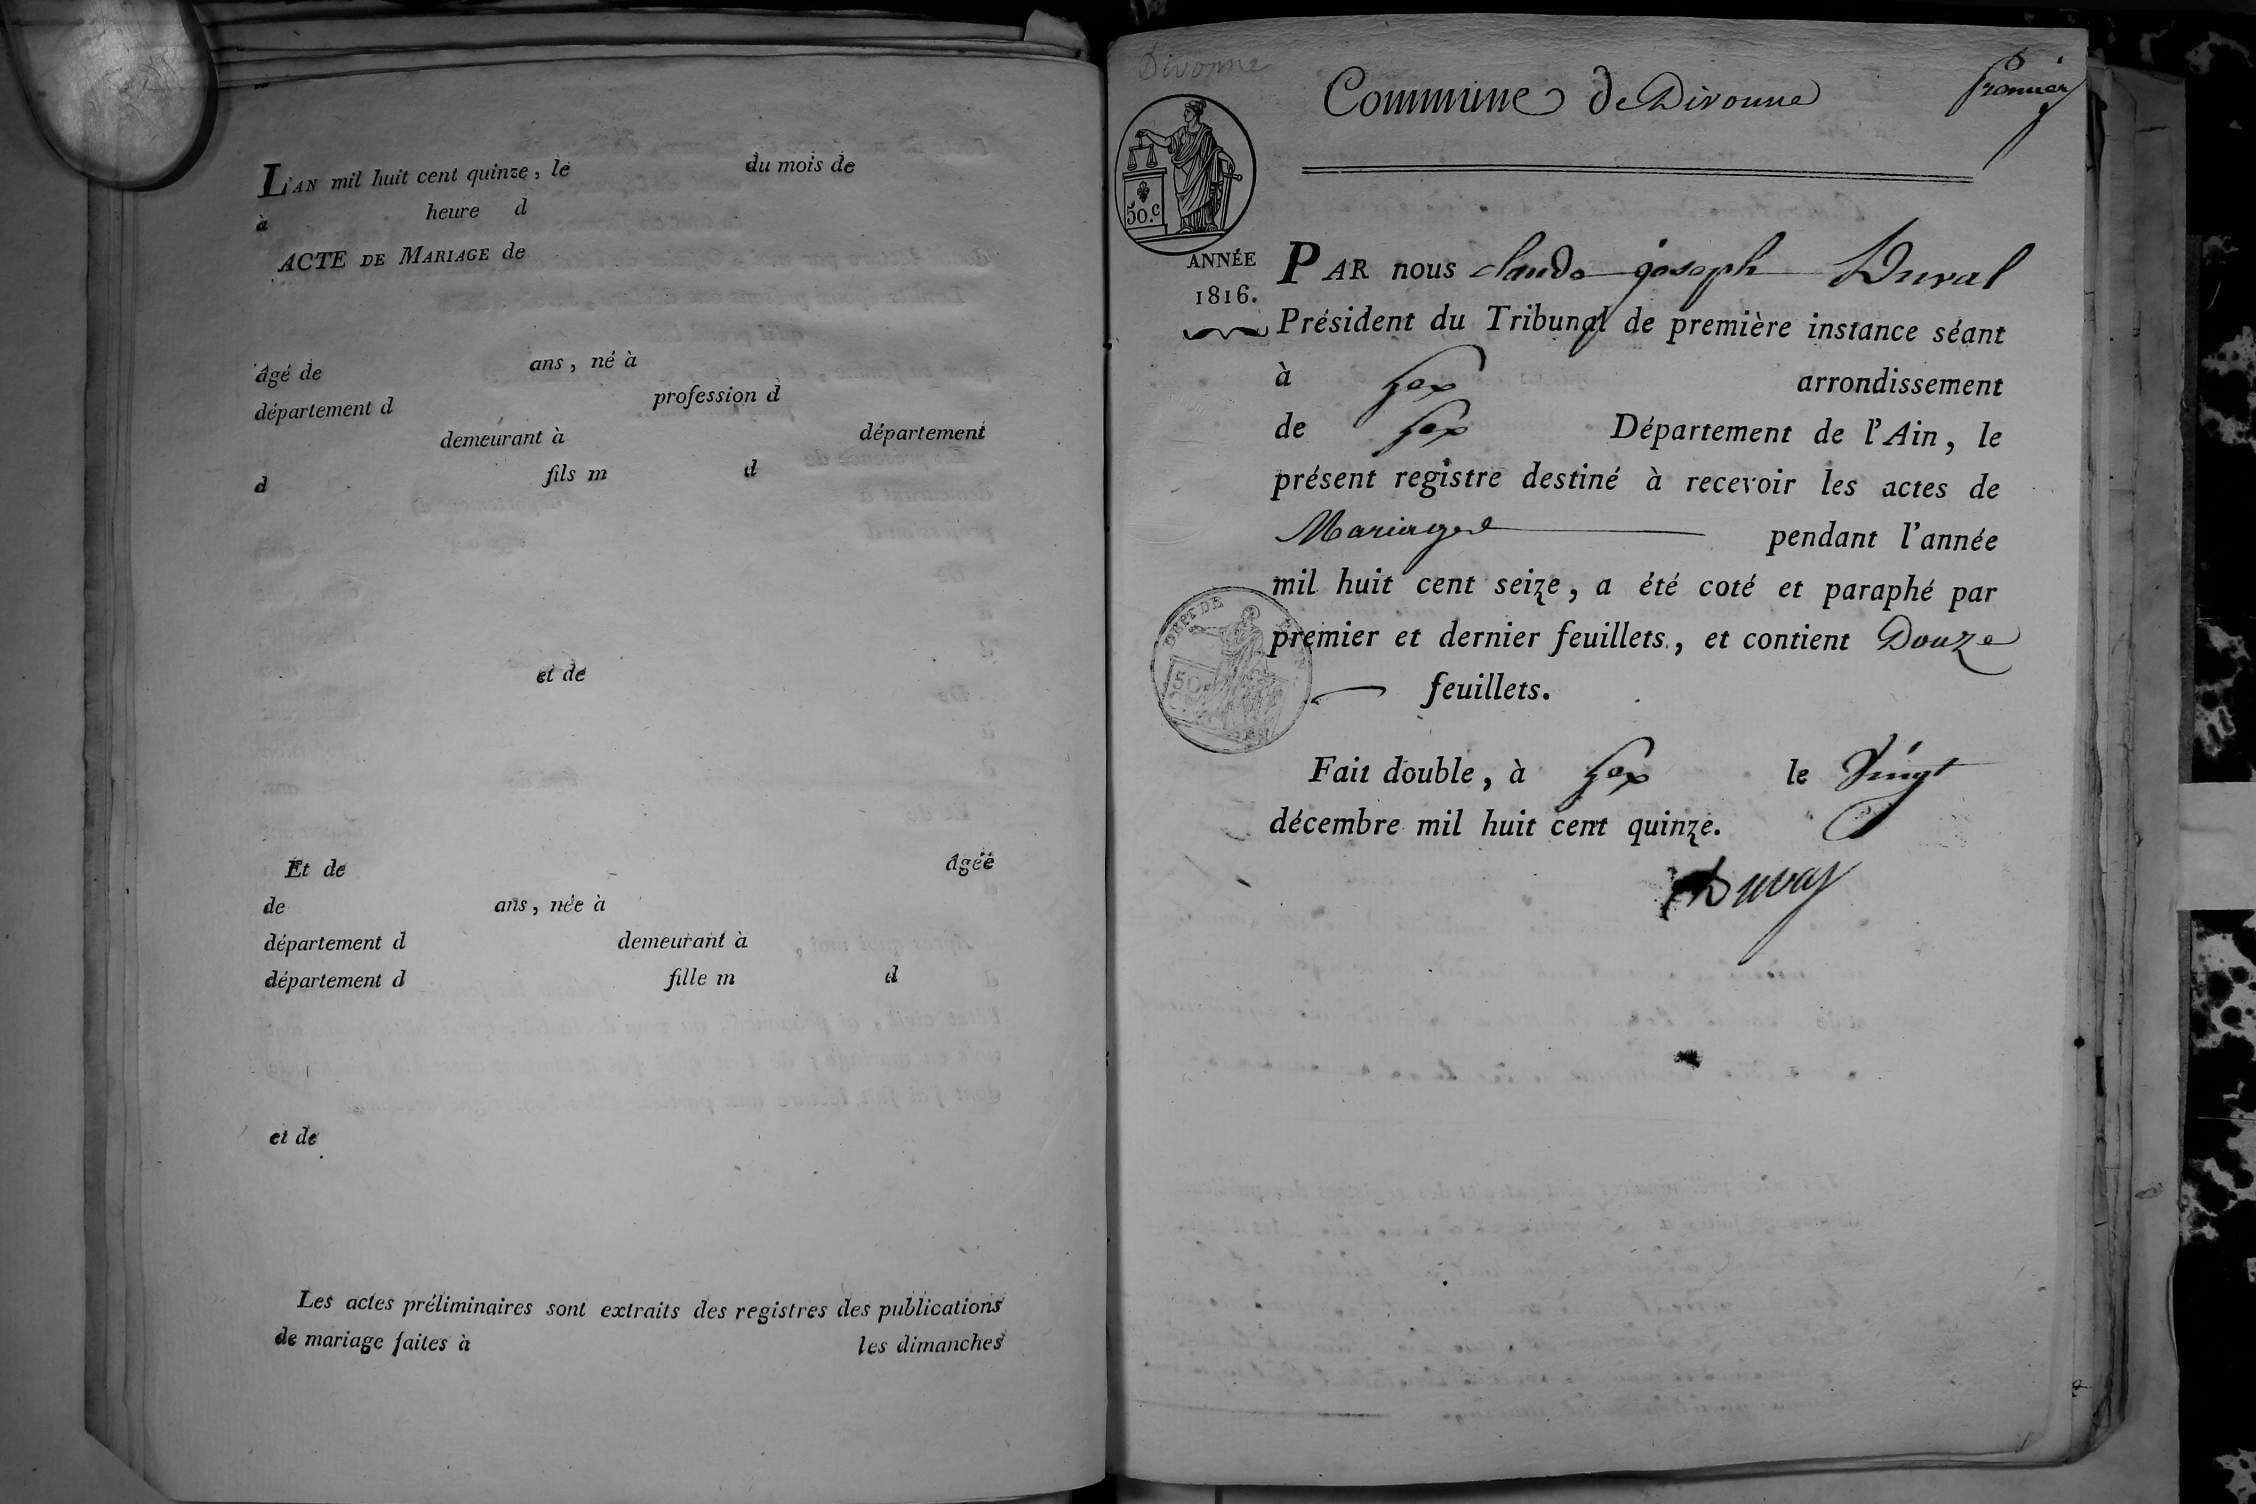 L'AN mil huit cent quinze, le du mois de
à heure d
ACTE DE MARIAGE de
âgé de ans, né à
département d profession d
demeurant à département
d fils m d
et de
Et de âgée
de ans, née à
département d demeurant à
département d fille m d
et de
Les actes préliminaires sont extraits des registres des publications
de mariage faites à les dimanches
Divonne
Commune de Divonne
Premier
50.c
ANNÉE
1816.
PAR nous Claude joseph Duval
Président du Tribunal de première instance séant
à Gex arrondissement
de Gex Département de l'Ain, le
présent registre destiné à recevoir les actes de
Mariages pendant l'année
mil huit cent seize, a été coté et paraphé par
premier et dernier feuillets, et contient Douze
feuillets.
DEPT DE
50
Fait double, à Gex le Vingt
décembre mil huit cent quinze.
Duval